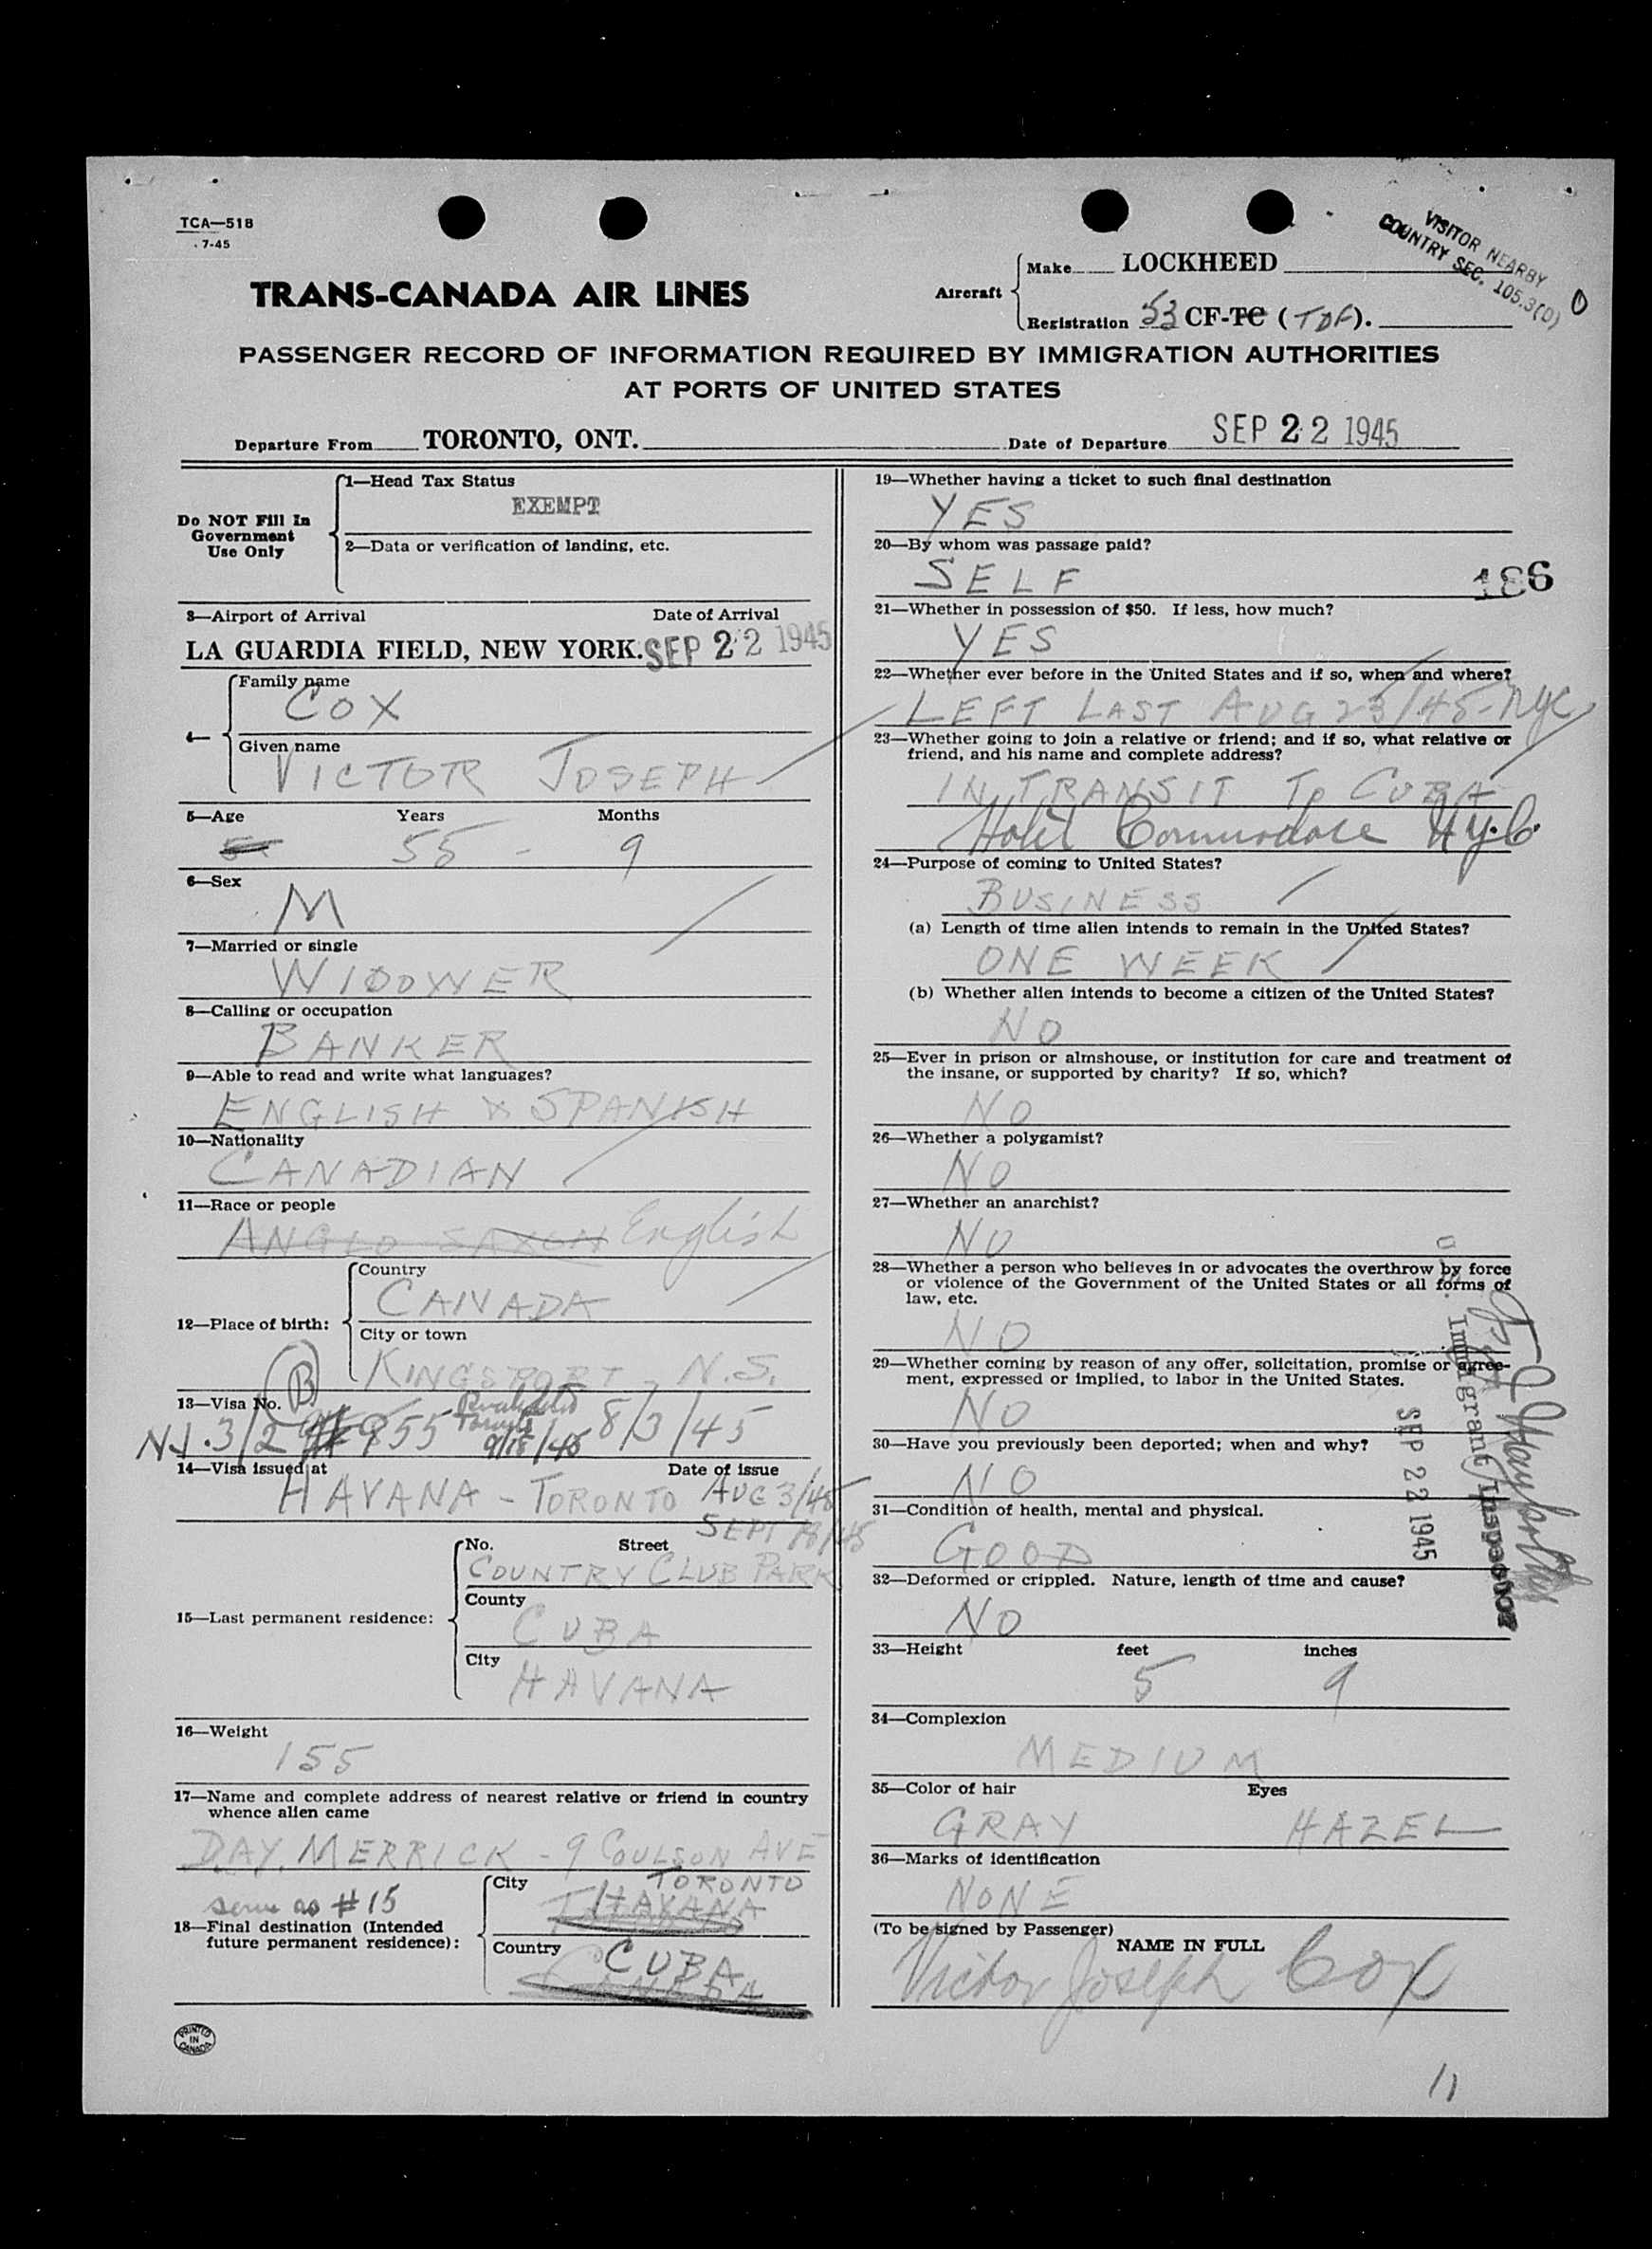 TCA—518
7-45
VISITOR NEARBY
COUNTRY SEC. 105.3(D)
TRANS-CANADA AIR LINES
Aircraft
Make LOCKHEED
Registration 53 CF-TC (TDF).
PASSENGER RECORD OF INFORMATION REQUIRED BY IMMIGRATION AUTHORITIES
AT PORTS OF UNITED STATES
Departure From TORONTO, ONT. Date of Departure SEP 22 1945
Do NOT Fill In
Government
Use Only
1—Head Tax Status
EXEMPT
2—Data or verification of landing, etc.
3—Airport of Arrival Date of Arrival
LA GUARDIA FIELD, NEW YORK. SEP 22 1945
4—
Family name
COX
Given name
VICTOR JOSEPH
5—Age Years Months
55 - 9
6—Sex
M
7—Married or single
WIDOWER
8—Calling or occupation
BANKER
9—Able to read and write what languages?
ENGLISH & SPANISH
10—Nationality
CANADIAN
11—Race or people
ANGLO SAXON English
12—Place of birth:
Country
CANADA
City or town
KINGSPORT N.S.
B
13—Visa No.
855 9/18/45 8/3/45
14—Visa issued at Date of issue
HAVANA - TORONTO AUG 3/45
SEPT 18/45
15—Last permanent residence:
No. Street
COUNTRY CLUB PARK
County
CUBA
City
HAVANA
16—Weight
155
17—Name and complete address of nearest relative or friend in country
whence alien came
DAY MERRICK - 9 COULSON AVE
TORONTO
same as #15
18—Final destination (Intended
future permanent residence):
City
HAVANA
Country
CUBA
CANADA
PRINTED
IN
CANADA
19—Whether having a ticket to such final destination
YES
20—By whom was passage paid?
SELF
186
21—Whether in possession of $50. If less, how much?
YES
22—Whether ever before in the United States and if so, when and where?
LEFT LAST AUG 23/45-NYC
23—Whether going to join a relative or friend; and if so, what relative or
friend, and his name and complete address?
IN TRANSIT TO CUBA
Hotel Commodore N.Y.C.
24—Purpose of coming to United States?
BUSINESS
(a) Length of time alien intends to remain in the United States?
ONE WEEK
(b) Whether alien intends to become a citizen of the United States?
NO
25—Ever in prison or almshouse, or institution for care and treatment of
the insane, or supported by charity? If so, which?
NO
26—Whether a polygamist?
NO
27—Whether an anarchist?
NO
28—Whether a person who believes in or advocates the overthrow by force
or violence of the Government of the United States or all forms of
law, etc.
NO
29—Whether coming by reason of any offer, solicitation, promise or agree-
ment, expressed or implied, to labor in the United States.
NO
30—Have you previously been deported; when and why?
NO
31—Condition of health, mental and physical.
GOOD
32—Deformed or crippled. Nature, length of time and cause?
NO
SEP 22 1945
Immigrant Inspector
33—Height feet inches
5 9
34—Complexion
MEDIUM
35—Color of hair Eyes
GRAY HAZEL
36—Marks of identification
NONE
(To be signed by Passenger)
NAME IN FULL
Victor Joseph Cox
11